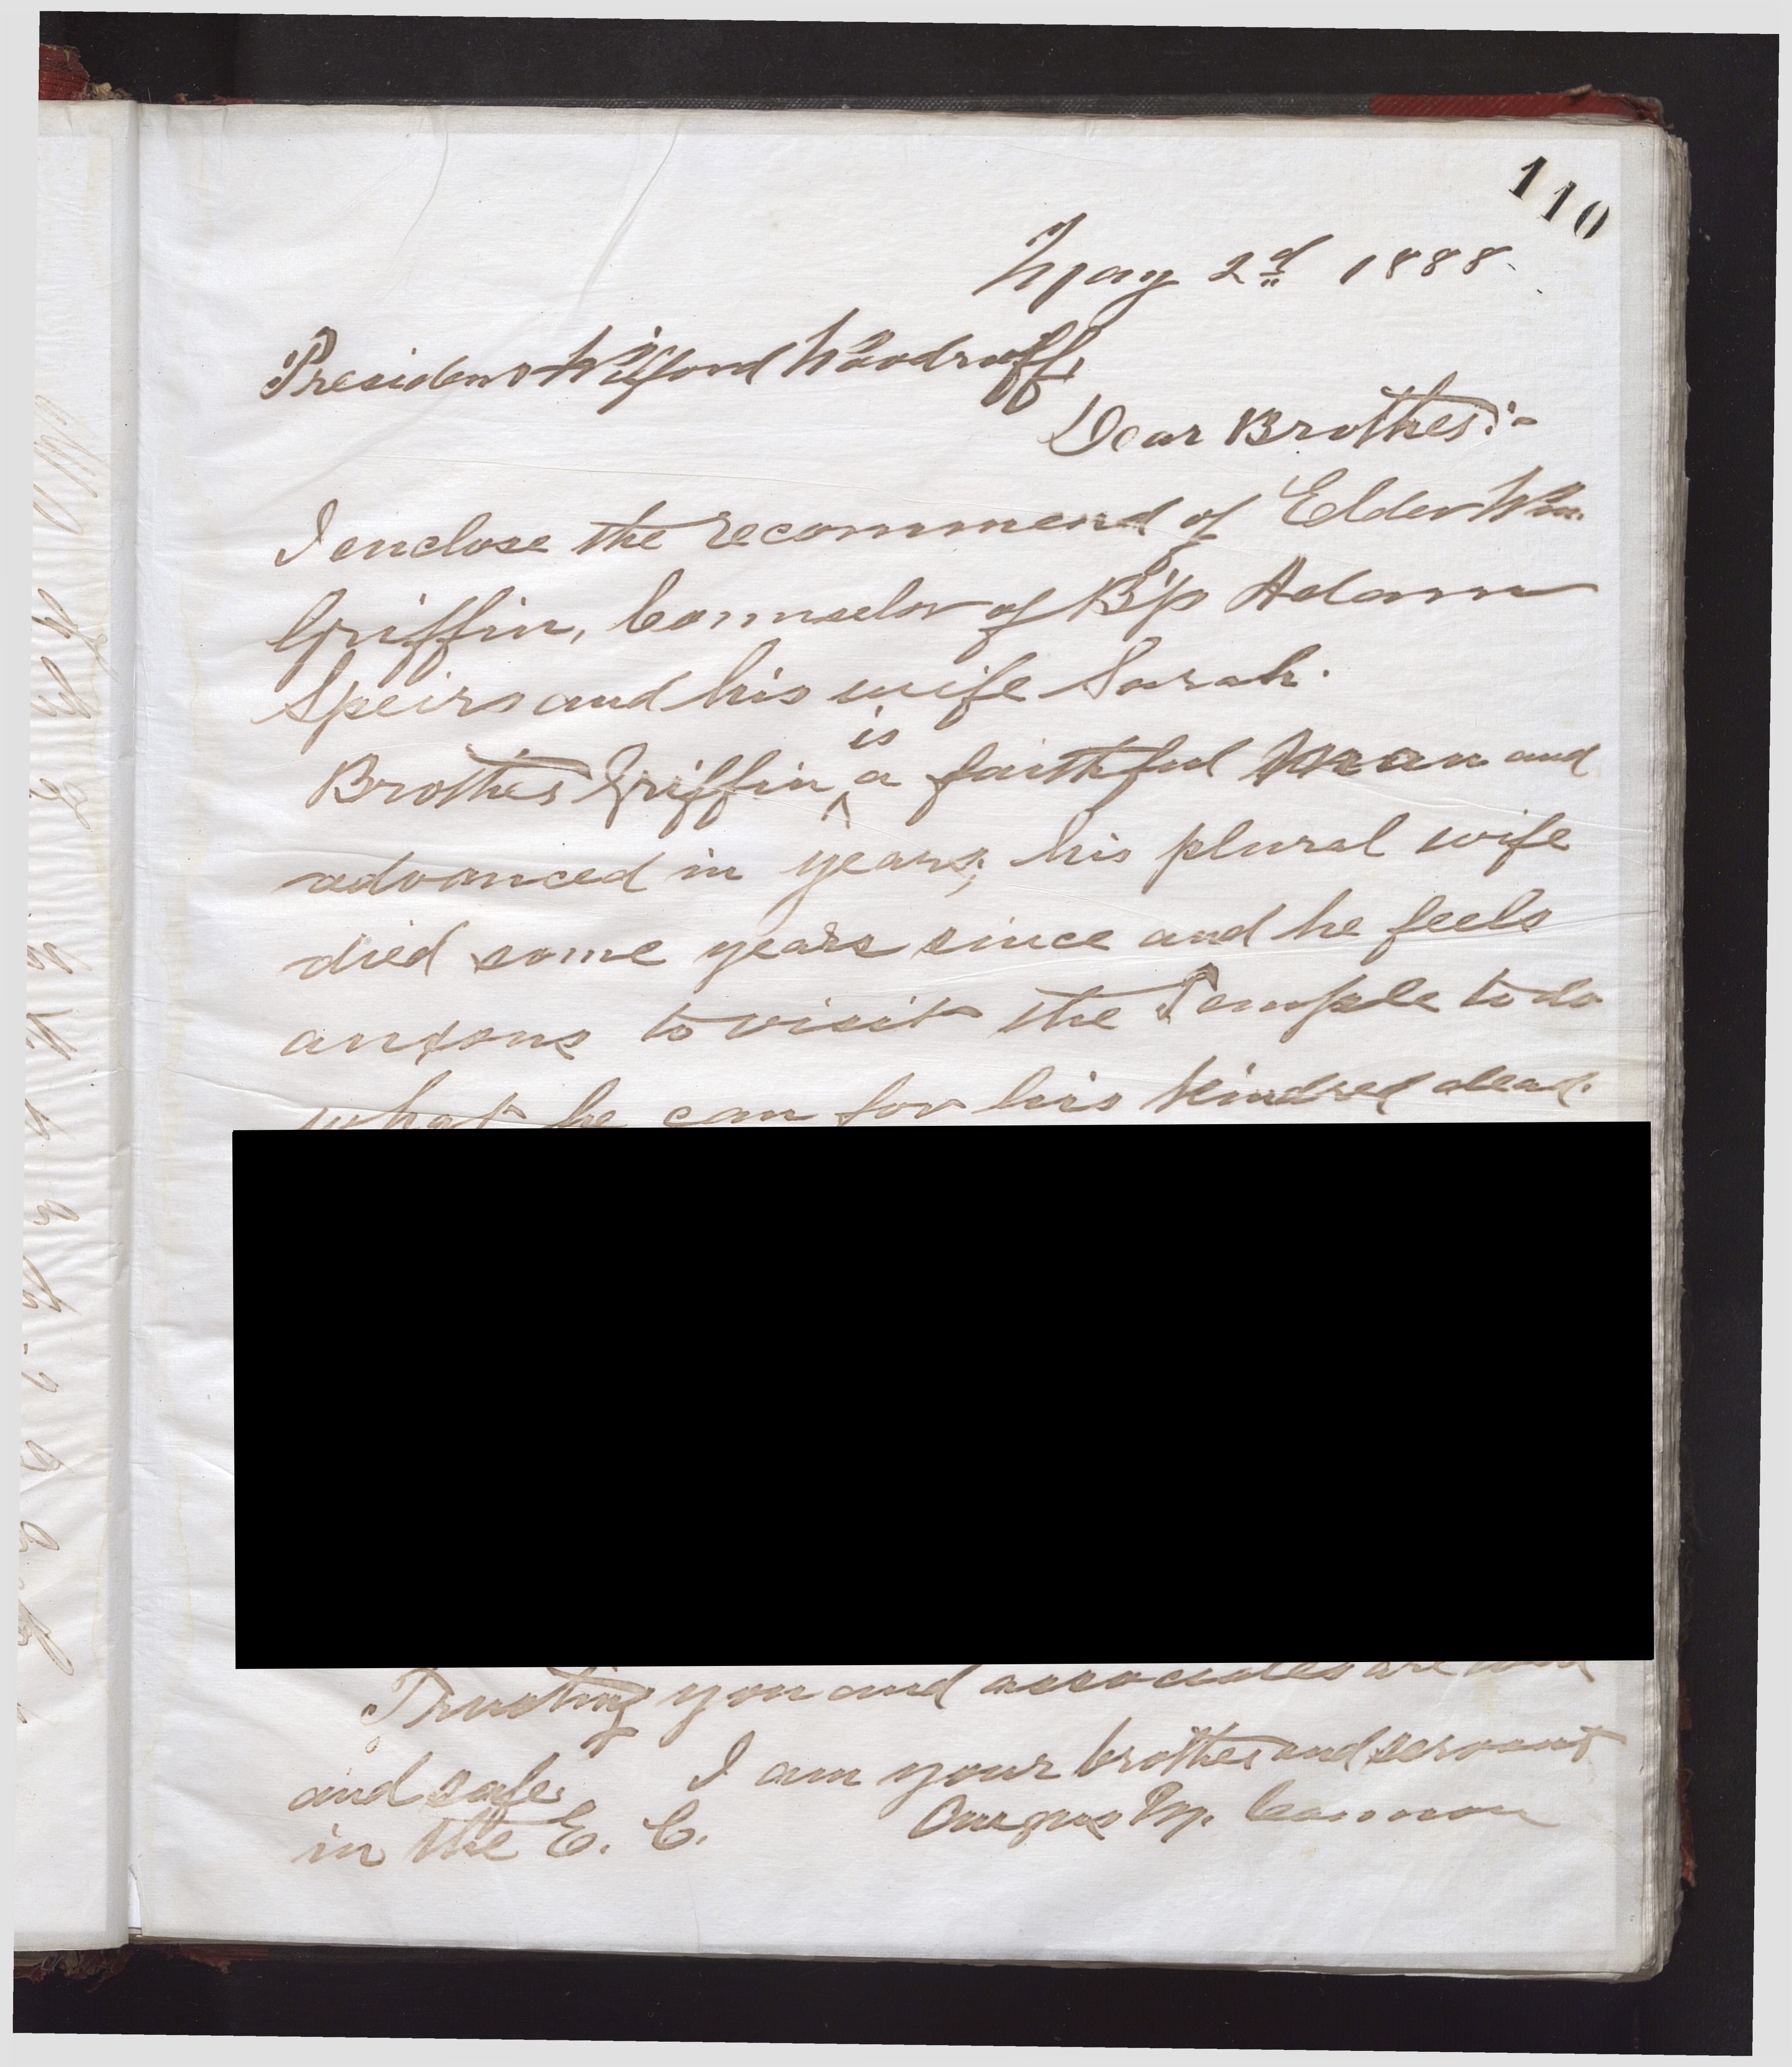 110
May 2d 1888.
President Wilford Woodruff,
Dear Brother:-
I enclose the recommend of Elder Wm.
Griffin, Counselor of B'p Adam
Speirs and his wife Sarah.
Brother Griffin is a faithful man and
advanced in years; his plural wife
died some years since and he feels
anxious to visit the Temple to do
what he can for his kindred dead.
Trusting you and associates are well
and safe. I am your brother and servant
in the E. C. Angus M. Cannon